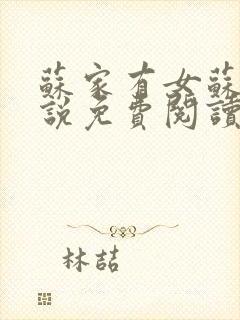 蘇家有女蘇
說免費閱讀
林喆